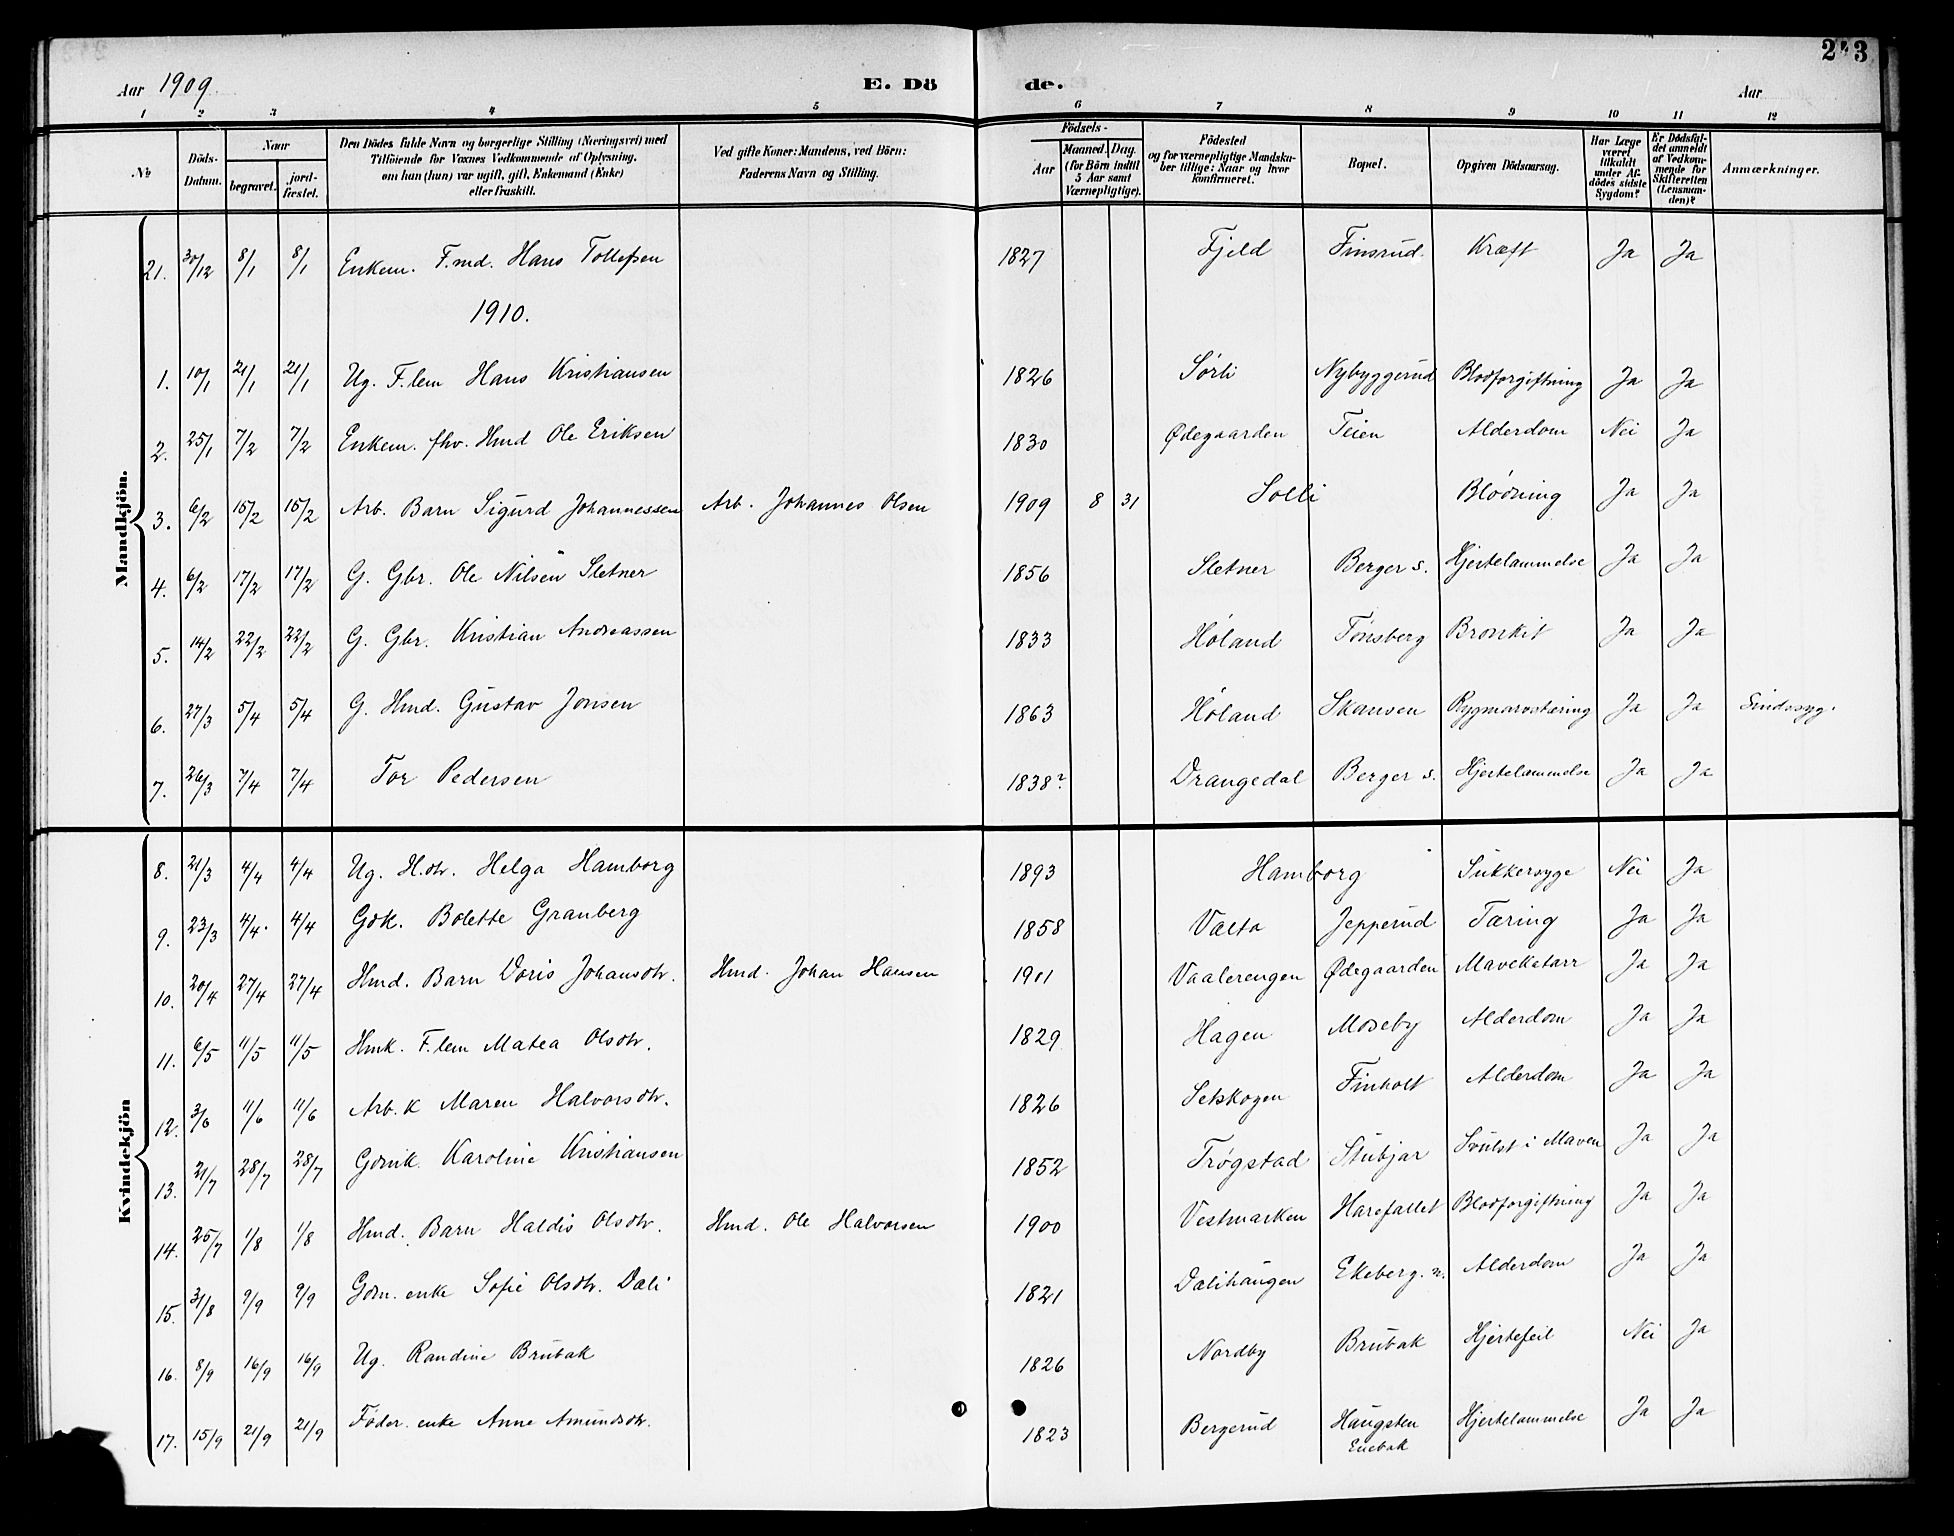 243
Aar 1909.
E. Dö de.
Aar
1 2 3 4 5 6 7 8 9 10 11 12
No
Döds-Datum.
Naar begravet. jord-fæstet.
Den Dödes fulde Navn og borgerlige Stilling (Næringsvei) med Tilföiende for Voxnes Vedkommende af Oplysning, om han (hun) var ugift, gift, Enkemand (Enke) eller fraskilt.
Ved gifte Koner: Mandens, ved Börn: Faderens Navn og Stilling.
Födsels- Aar Maaned. Dag. (for Börn indtil 5 Aar samt Værnepligtige).
Födested og for værnepligtige Mandskaber tillige: Naar og hvor konfirmeret.
Bopæl.
Opgiven Dödsaarsag.
Har Læge været tilkaldt under Afdödes sidste Sygdom?
Er Dödsfaldet anmeldt af Vedkommende for Skifteretten (Lensmanden)?
Anmærkninger.
Mandkjön.
21. 30/12 8/1 8/1 Enkem. F.md. Hans Tollefsen 1827 Fjeld Finsrud. Kræft Ja Ja
1910.
1. 10/1 21/1 21/1 Ug. F.lem Hans Kristiansen 1826 Sørli Nybyggerud Blodforgiftning Ja Ja
2. 25/1 7/2 7/2 Enkem. fhv. Hmd Ole Eriksen 1830 Ødegaarden Teien Alderdom Nei Ja
3. 6/2 15/2 15/2 Arb. Barn Sigurd Johannessen Arb. Johannes Olsen 1909 8 31 Solli Blødning Ja Ja
4. 6/2 17/2 17/2 G. Gbr. Ole Nilsen Sletner 1856 Sletner Berger s. Hjertelammelse Ja Ja
5. 14/2 22/2 22/2 G. Gbr. Kristian Andreassen 1833 Høland Tønsberg Bronkit Ja Ja
6. 27/3 5/4 5/4 G. Hmd. Gustav Jonsen 1863 Høland Skansen Rygmarvstæring Ja Ja Sindssyg.
7. 26/3 7/4 7/4 Tor Pedersen 1838? Drangedal Berger s. Hjertelammelse Ja Ja
Kvindekjön
8. 21/3 4/4 4/4 Ug. H.dtr. Helga Hamborg 1893 Hamborg Sukkersyge Nei Ja
9. 23/3 4/4. 4/4 Gdk. Bolette Granberg 1858 Valto Jepperud Tæring Ja Ja
10. 20/4 27/4 27/4 Hmd. Barn Doris Johansdtr. Hmd. Johan Hansen 1901 Vaalerengen Ødegaarden Mavekatarr Ja Ja
11. 6/5 11/5 11/5 Hmk. F.lem Matea Olsdtr. 1829 Hagen Moseby Alderdom Ja Ja
12. 3/6 11/6 11/6 Arb. K Maren Halvorsdtr. 1826 Setskogen Finholt Alderdom Ja Ja
13. 21/7 28/7 28/7 Gdmk. Karoline Kristiansen 1852 Trøgstad Stubjar Svulst i Maven Ja Ja
14. 25/7 1/8 1/8 Hmd. Barn Haldis Olsdtr. Hmd. Ole Halvorsen 1900 Vestmarken Harefallet Blodforgiftning Ja Ja
15. 31/8 9/9 9/9 Gdm. enke Sofie Olsdtr. Dali 1821 Dalihaugen Ekeberg. n. Alderdom Ja Ja
16. 8/9 16/9 16/9 Ug. Randine Brubak 1826 Nordby Brubak Hjertefeil Nei Ja
17. 15/9 21/9 21/9 Føder. enke Anne Amundsdtr. 1823 Bergerud Haugsten Hjertelammelse Ja Ja
Enebak